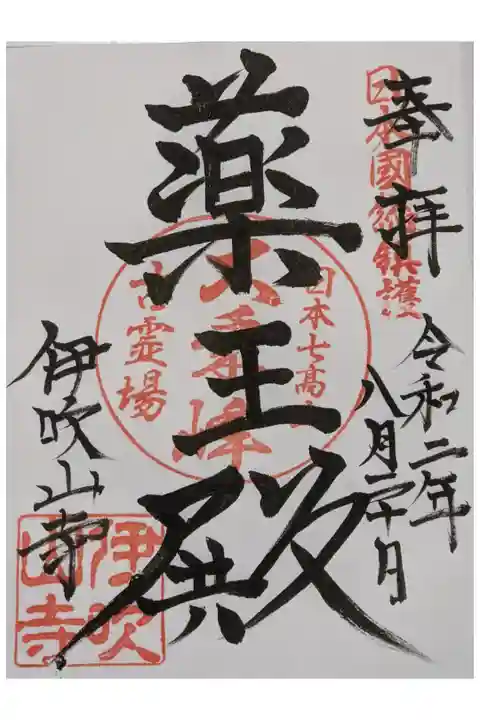 奉拝
日本國総鎮護
令和二年
八月二十日
薬王殿
日本七高
大乗峰
古霊場
伊吹山寺
伊吹
山寺